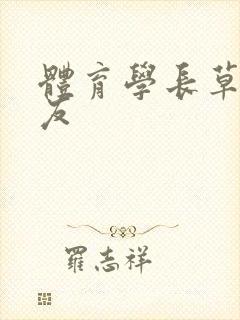 體育學長草
友
羅志祥